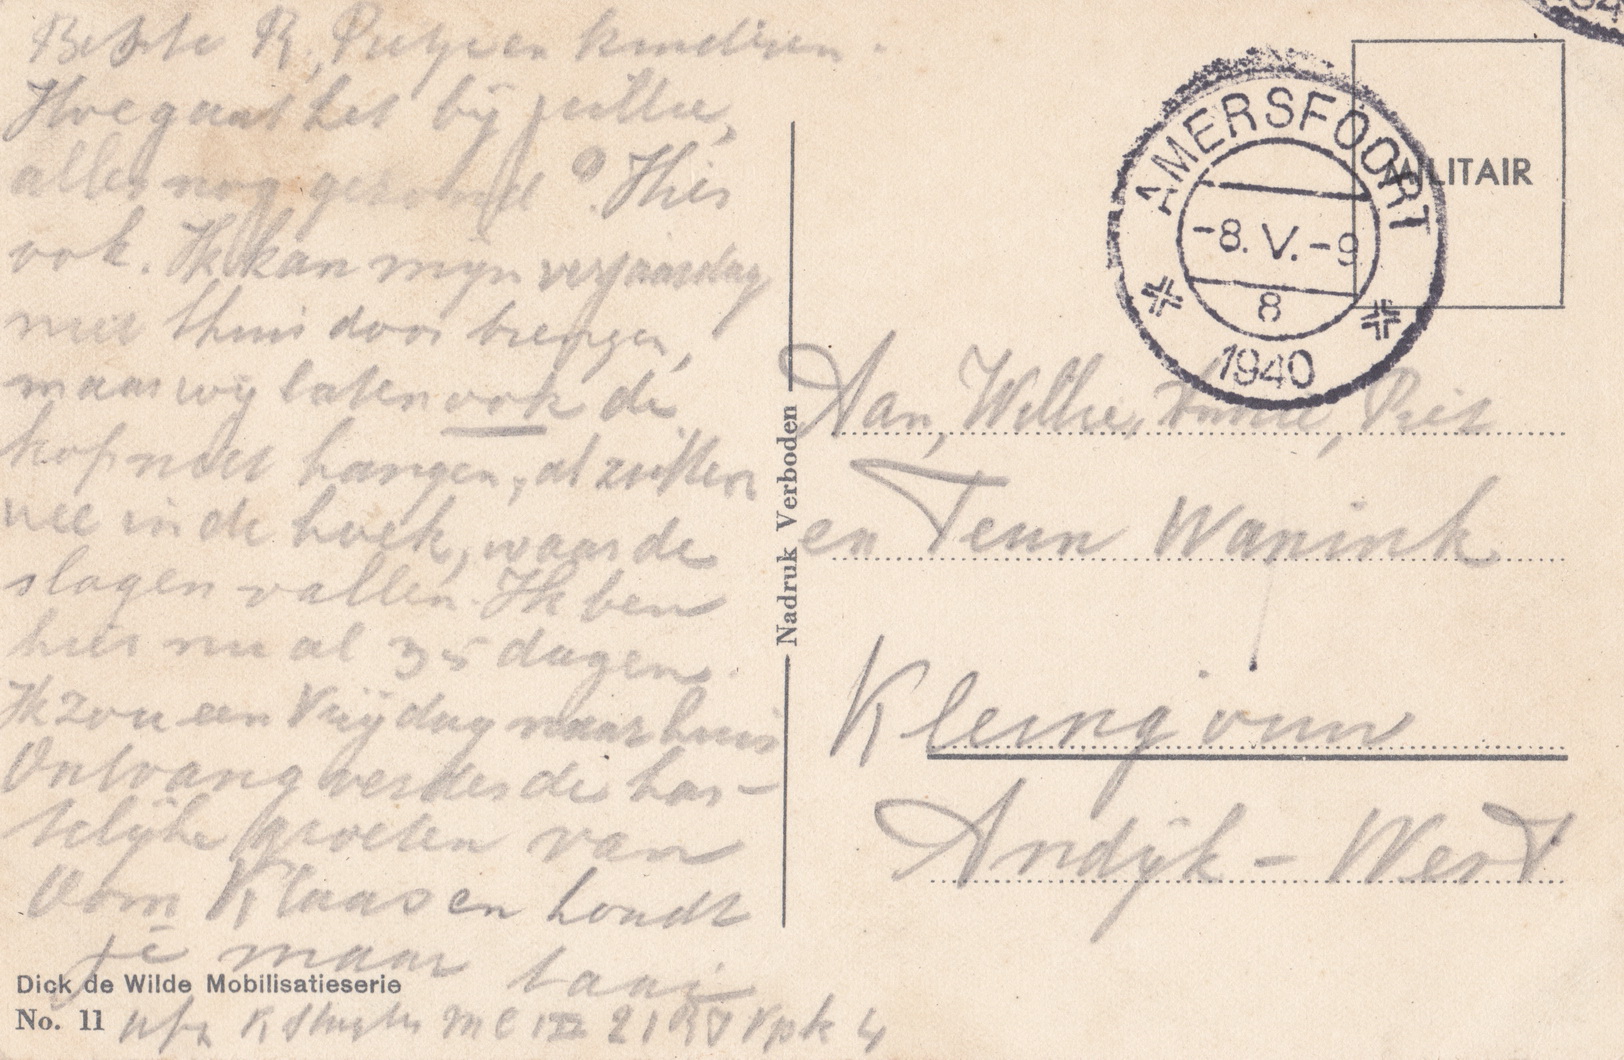 Beste R, Pietje en kinderen.
Hoe gaat het bij jullie,
alles nog gezond? Hier
ook. Ik kan mijn verjaardag
niet thuis door brengen,
maar wij laten ook de
kop niet hangen, al zitten
we in de hoek, waar de
slagen vallen. Ik ben
hier nu al 35 dagen.
Ik zou een Vrijdag naar huis
Ontvang verder de har-
telijke groeten van
Oom Klaas en houdt
je maar taai
Dick de Wilde Mobilisatieserie
No. 11
K
Vpk 4
Nadruk Verboden
AMERSFOORT
-8.V.-9
8
1940
MILITAIR
Aan, Willie, Piet
en Teun Wanink
Kleingouw
Andijk - West